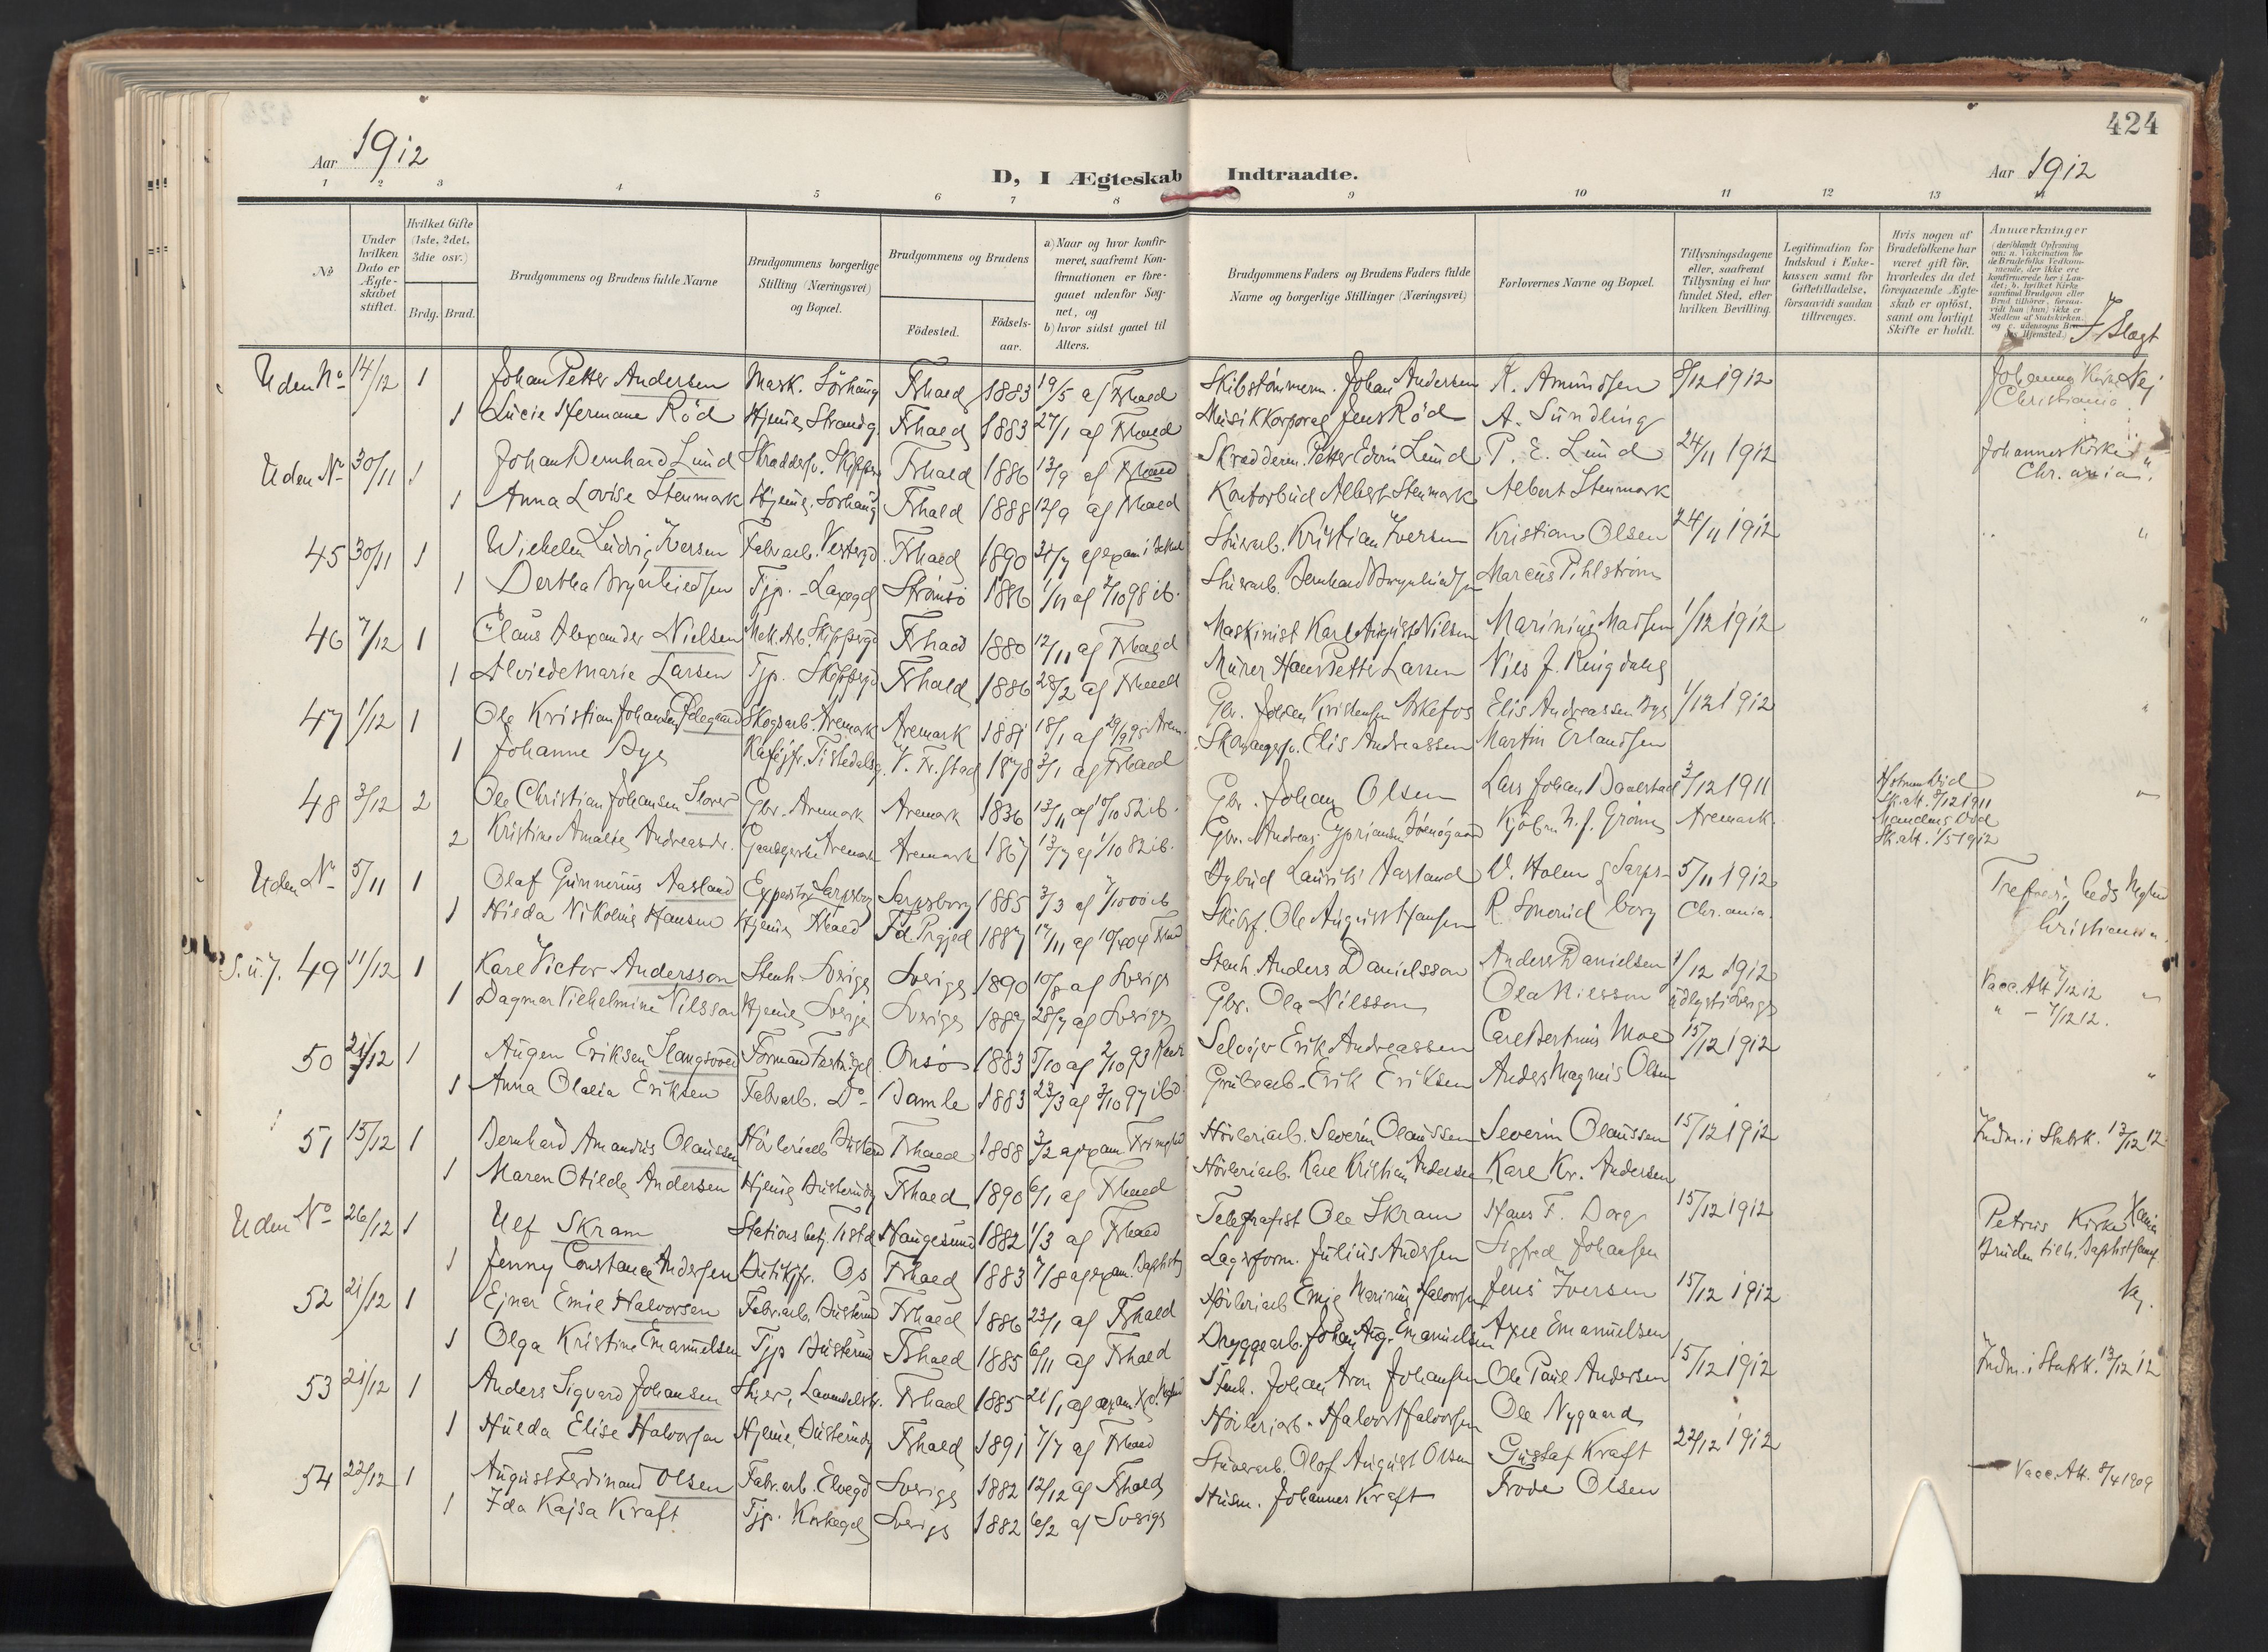 424
Aar 1912
D, I Ægteskab Indtraadte.
Aar 1912
1 2 3 4 5 6 7 8 9 10 11 12 13 14
No
Under hvilken Dato er Ægteskabet stiftet.
Hvilket Gifte (1ste, 2det, 3die osv.)
Brdg. Brud.
Brudgommens og Brudens fulde Navne
Brudgommens borgerlige Stilling (Næringsvei) og Bopæl.
Brudgommens og Brudens
Födested.
Födselsaar.
a) Naar og hvor konfirmeret, saafremt Konfirmationen er foregaaet udenfor Sognet, og
b) hvor sidst gaaet til Alters.
Brudgommens Faders og Brudens Faders fulde Navne og borgerlige Stillinger (Næringsvei)
Forlovernes Navne og Bopæl.
Tillysningsdagene eller, saafremt Tillysning ei har fundet Sted, efter hvilken Bevilling.
Legitimation for Indskud i Enkekassen samt for Giftetilladelse, forsaavidt saadan tiltrænges.
Hvis nogen af Brudefolkene har været gift för, hvorledes da det foregaaende Ægteskab er oplöst, samt om lovligt Skifte er holdt.
Anmærkninger
I Slægt
Uden No 14/12 1 Johan Petter Andersen Mask. Sörhaug Frhald 1883 19/5 af Frhald Skibstömmerm. Johan Andersen K. Amundsen 8/12 1912 Johannes Kirke Nej
1 Lucie Hermane Röd Hjemme Strandg. Frhald 1883 27/1 af Frhald Musikkorporal Jens Röd A. Sundling Christiania
Uden No 30/11 1 Johan Bernhard Lund Skræddersv. Frhald 1886 13/9 af Frhald Skrædderm. Petter Edvin Lund P. E. Lund 24/11 1912 Johannes Kirke "
1 Anna Lovise Stenmark Hjemme. Sörhaug Frhald 1888 12/9 af Frhald Kontorbud Albert Stenmark Albert Stenmark Chr.ania.
45 30/11 1 Wilhelm Ludvig Iversen Fabr.arb. Vestergd. Frhald 1890 Stuerarb. Kristian Iversen Kristian Olsen 24/11 1912 "
1 Bertha Brynhildsen Tjp. Strömsö 1886 1/11 af 2/10 98 ib. Stuerarb. Bernhard Brynhildsen Marcus Pihlström
46 7/12 1 Claus Alexander Nielsen Mek. Arb. Skippergd Frhald 1880 12/11 af Frhald Maskinist Karl August Nilsen Marinius Madsen 1/12 1912 "
1 Alvilde Marie Larsen Tjp. Skippergd Frhald 1886 28/2 af Frhald Murer Hans Petter Larsen Nils J. Ringdahl
47 1/12 1 Ole Kristian Johansen Ödegaard Skogsarb. Aremark Aremark 1881 18/1 af 29/9 95 Arem. Gbr. Johan Kristensen Askefos Elis Andreassen Bye 1/12 1912 "
1 Johanne Bye Kaféjfr. Tistedalsg. V. Fr.stad 1878 3/1 af Frhald Elis Andreassen Martin Erlandsen
48 3/12 2 Ole Christian Johansen Gbr. Aremark Aremark 1836 13/11 af 10/10 52 ib. Gbr. Johan Olsen Lars Johan 3/12 1911 Konen död Sk.att. 8/12 1911 "
2 Kristine Amalie Andreasdr. Gaardejerske Aremark Aremark 1867 13/7 af 1/10 82 ib. Gbr. Andreas Cyprianson Kjöbm. N. J. Grön Aremark. Manden död Sk.att. 1/5 1912
Uden No 5/11 1 Olaf Gunnerius Aasland Sarpsborg Sarpsborg 1885 3/3 af 7/10 00 ib Bybud Laurits Aasland V. Holm Sarps- 5/11 1912
1 Hilda Nikoline Hansen Hjemme Frhald Fd. Prgjeld 1887 17/11 af Skibsf. Ole August Hansen R. Smerud borg Chr.ania. Christiania.
S.u.7. 49 11/12 1 Karl Victor Andersson Stenh. Sverige Sverige 1890 10/8 af Sverige Stenh. Anders Danielsson Anders Danielsen 1/12 1912 Vacc. Att. 7/12 12 "
1 Dagmar Vilhelmine Nilsson Hjemme Sverige Sverige 1889 28/7 af Sverige Gbr. Ola Nilsson Ola Nilsson udlyst i Sverige " - 7/12 12.
50 21/12 1 Augen Eriksen Slangsvold Formand Onsö 1883 5/10 af 2/10 93 Selveier Erik Andreassen Carl Bertinus Moe 15/12 1912
1 Anna Olalia Eriksen Fabr.arb. Do Bamle 1883 23/3 af 3/10 97 ibd. Grubearb. Erik Eriksen Anders Magnus Olsen "
51 15/12 1 Bernhard Amandus Olaussen Hövleriarb. Frhald 1888 3/2 af Hövleriarb. Severin Olaussen Severin Olaussen 15/12 1912 Indm. i Statsk. 13/12 12
1 Maren Otilde Andersen Hjemme Busterudg Frhald 1890 6/1 af Frhald Hövleriarb. Karl Kristian Andersen Karl Kr. Andersen
Uden No 26/12 1 Ulf Skram Stationsbetj. Tistd Haugesund 1882 1/3 af Frhald Telegrafist Ole Skram Hans F. Dorg 15/12 1912 Petrus Kirke Kania
1 Jenny Constance Andersen Butikjfr. Os Frhald 1883 Lagerform. Julius Andersen Sigfred Johansen Bruden tilh. Baptistsamf.
52 21/12 1 Ejnar Emil Halvorsen Fabr.arb. Busterud Frhald 1886 23/1 af Frhald Hövleriarb Emil Marinius Halvorsen Jens Iversen 15/12 1912 Nej.
1 Olga Kristine Emanuelsen Tjp Busterud Frhald 1885 6/11 af Frhald Bryggearb. Johan Aug. Emanuelsen Axel Emanuelsen
53 21/12 1 Anders Sigvard Johansen Frhald 1885 21/1 af Stenh. Johan Aron Johansen Ole Paul Andersen 15/12 1912 Indm. i Statsk. 13/12 12
1 Hulda Elise Halvorsen Hjemme, Busterudg Frhald 1891 7/7 af Frhald Hövleriarb. Halvor Halvorsen Ole Nygaard
54 22/12 1 August Ferdinand Olsen Fabr.arb. Elvegd Sverige 1882 12/12 af Frhald Stuverarb. Olof August Olsen Gustaf Kraft 22/12 1912 Vacc. Att. 8/4 1909
1 Ida Kajsa Kraft Tjp. Kirkegd Sverige 1882 6/2 af Sverige Husm. Johannes Kraft Frode Olsen